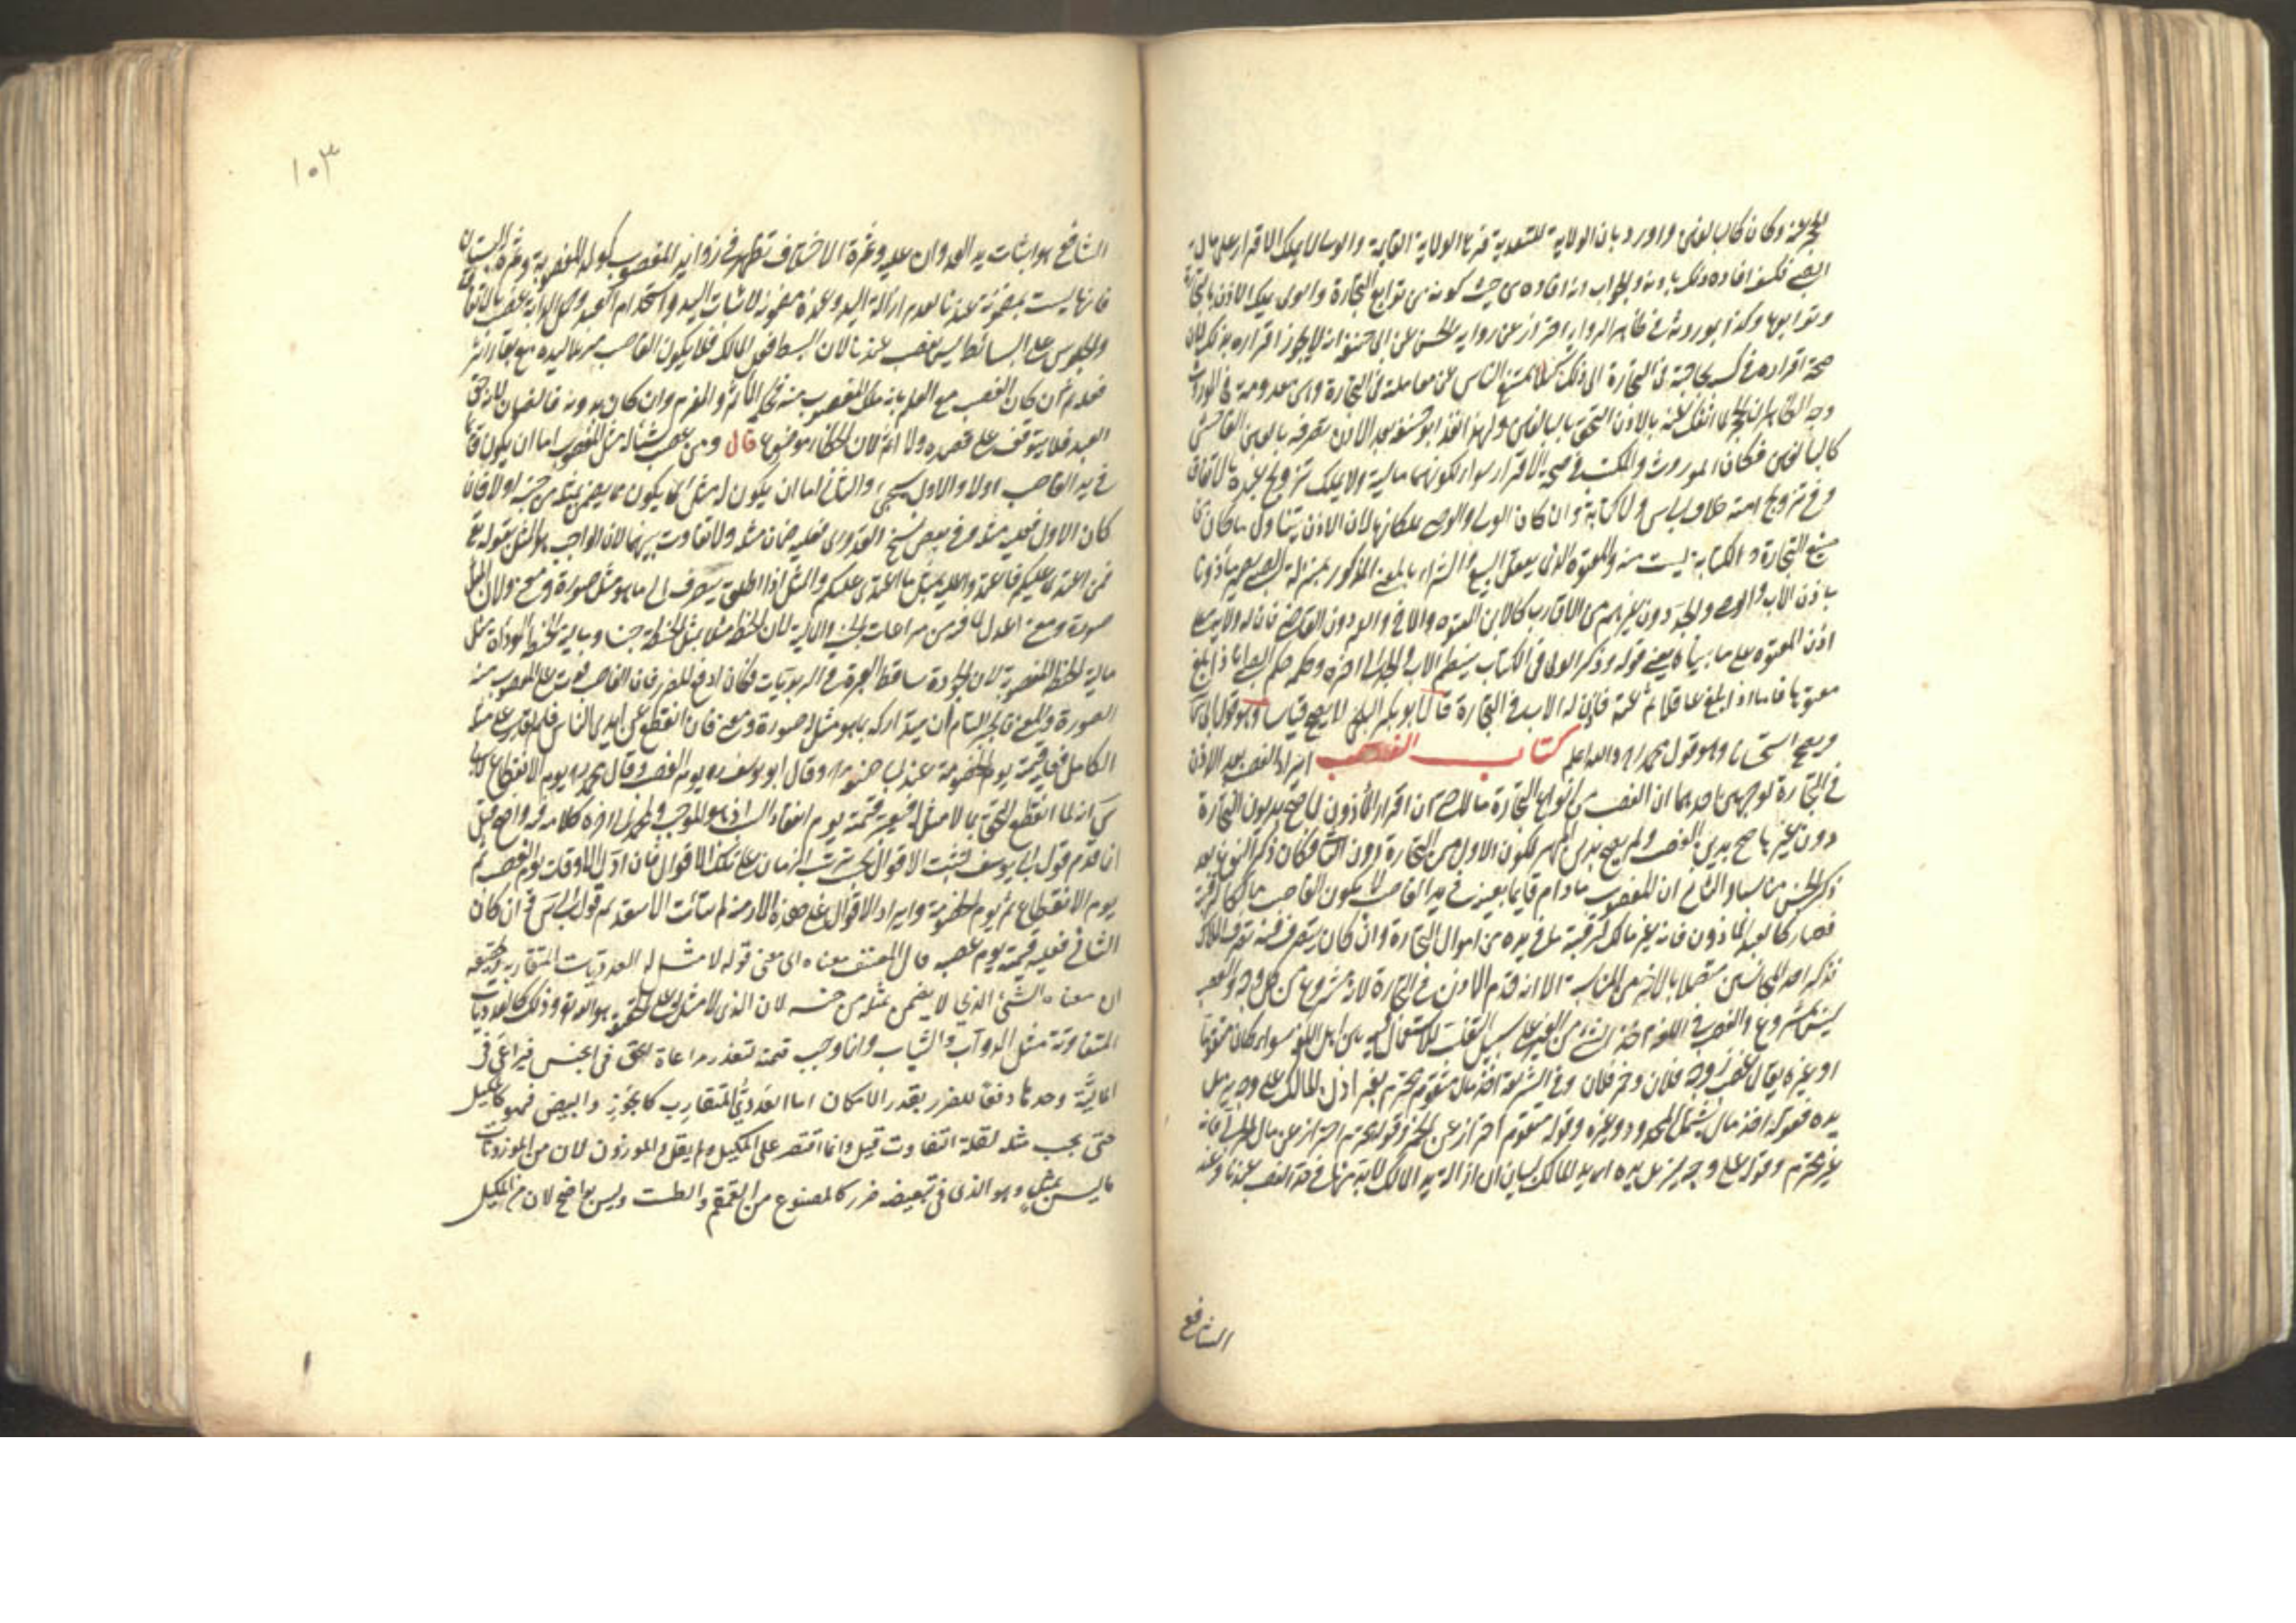 الحجر عنه وكان كالبالغين واورد بان الولاية المتعدية فرع الولاية القائمة والولى لا يملك الاقرار على مال
الصبى فكيف افاده ذلك باذنه والجواب انه افاده من حيث كونه من توابع التجارة والولى يملك الاذن بالتجارة
وتوابعها وكذا بموروثه فى ظاهر الرواية احتراز عن رواية الحسن عن ابى حنيفة انه لا يجوز اقراره بذلك لان
صحة اقراره فى كسبه لحاجته فى التجارة الى ذلك لئلا يمتنع الناس عن معاملته فى التجارة وهى معدومة فى الموروث
وجه الظاهر ان الحجر لما انفك عنه بالاذن التحق بالبالغين ولهذا نفذ ابو حنيفة بعد الاذن تصرفه بالغبن الفاحش
كالبالغين فكان الموروث والمكتسب فى صحة الاقرار سواء لكونهما ماليه ولا يملك تزويج عبده بالاتفاق
وفى تزويج امته خلاف ولا كتابة وان كان الولى والوصى يملكانها لان الاذن يتناول ما كان من
صنيع التجارة والكتابة ليست منه والمعتوه الذى يعقل البيع والشراء بالمعنى المذكور بمنزلة الصبى يصير مأذونا
باذن الاب والوصى والجد دون غيرهم من الاقارب كالابن المعتوه والاخ والعم دون القاضى فان له ولاية
اذن المعتوه على ما بيناه يعنى قوله وذكر الولى فى الكتاب ينتظم الاب والجد الى اخره وحكمه حكم الصبى اذا بلغ
معتوها فاما اذا بلغ عاقلا ثم عته فاذن له الاب فى التجارة قال ابو بكر البلخى لا يصح قياسا وهو قول ابى
ويصح استحسانا وهو قول محمد والله اعلم كتاب الغصب ايراد الغصب بعد الاذن
فى التجارة لوجهين احدهما ان الغصب من انواع التجارة حتى ان اقرار المأذون لما صح بديون التجارة
دون غيرها صح بدين الغصب ولم يصح بدين المهر لكون الاول من التجارة دون الثانى فكان ذكر النوع بعد
ذكر الجنس مناسبا والثانى ان المغصوب ما دام قائما بعينه فى يد الغاصب لا يكون الغاصب مالكا لرقبته
فصار كالعبد المأذون فانه غير مالك لرقبته وما فى يده من اموال التجارة وان كان يتصرف فيه تصرف الملاك
فذكر احد المتجانسين متصلا بالاخر من المناسبة الا انه قدم الاذن فى التجارة لانه مشروع من كل وجه والغصب
ليس بمشروع والغصب فى اللغة اخذ الشىء من الغير على سبيل التغلب للاستعمال فيه بين اهل اللغة سواء كان متقوما
او غيره يقال غصب زوجة فلان وخمر فلان وفى الشريعة اخذ مال متقوم محترم بغير اذن المالك على وجه يزيل
يده فقوله اخذ مال يشمل المحدود وغيره وقوله متقوم احتراز عن الخمر وقوله محترم احتراز عن مال الحربى فانه
غير محترم وقوله على وجه يزيل يده اى يد المالك لبيان ان ازالة يد المالك لا بد منها فى حد الغصب عندنا وعند
الشافعى
١٠٣
الشافعى هو اثبات يد العدوان عليه وثمرة الاختلاف تظهر فى زوائد المغصوب كولد المغصوبة وثمرة البستان
فانها ليست بمضمونة عندنا لعدم ازالة اليد وعنده مضمونة لاثبات اليد واستخدام العبد وحمل الدابة غصب بالاتفاق
والجلوس على البساط ليس بغصب عندنا لان البسط فعل المالك فلا يكون الغاصب مزيلا ليده مع بقاء اثر
فعله ثم ان كان الغصب مع العلم بانه ملك المغصوب منه فحكمه المأثم والمغرم وان كان بدونه فالضمان لانه حق
العبد فلا يتوقف على قصده ولا اثم لان الخطأ موضوع قال ومن غصب شيئا له مثل المغصوب اما ان يكون قائما
فى يد الغاصب اولا والاول سيجئ والثانى اما ان يكون له مثل اى يكون مما يضمن بمثله من جنسه او لا فان
كان الاول فعليه مثله وفى بعض نسخ القدورى فعليه ضمان مثله ولا تفاوت بينهما لان الواجب هو المثل بقوله تع
فمن اعتدى عليكم فاعتدوا عليه بمثل ما اعتدى عليكم والمثل اذا اطلق يصرف الى ما هو مثل صورة ومعنى ولان المثل
صورة ومعنى اعدل لما فيه من مراعات الجنس والمالية لان الحنطة مثلا مثل الحنطة جنسا ومالية الحنطة المؤداة مثل
مالية الحنطة المغصوبة لان الجودة ساقط العبرة فى الربويات فكان ادفع للضرر فان الغاصب فوت على المغصوب منه
الصورة والمعنى فالجبر التام ان يتداركه بما هو مثل له صورة ومعنى فان انقطع عن ايدى الناس فلم يقدر على مثله
الكامل فعليه قيمته يوم الخصومة عند ابى حنيفة وقال ابو يوسف يوم الغصب وقال محمد يوم الانقطاع لابى
س انه لما انقطع التحق بما لا مثل له فيعتبر قيمته يوم انعقاد السبب اذ هو الموجب ولمحمد الى اخره كلامه فيه واضح قيل
انما قدم قول ابى يوسف ليثبت الاقوال بحسب ترتيب الزمان على تلك الاقوال فان اول الاوقات يوم الغصب ثم
يوم الانقطاع ثم يوم الخصومة وايراد الاقوال على هذه الازمنة لم يتأت الا بتقديم قول ابى س وان كان
الثانى فعليه قيمته يوم غصبه قال المصنف معناه اى معنى قوله لا مثل له العدديات المتقاربة وحقيقة
ان معناه الشئ الذى لا يضمن بمثله من جنسه لان الذى لا مثل له على الحقيقة هو الله تع وذلك كالعدديات
المتفاوتة مثل الدوآب والثياب وانما وجب قيمته لتعذر مراعاة الحق فى الجنس فيراعى فى
المالية وحدها دفعا للضرر بقدر الامكان اما العددى المتقارب كالجوز والبيض فهو كالمكيل
حتى يجب مثله لقلة التفاوت قيل وانما اقتصر على المكيل ولم يقل والموزون لان من الموزونات
ما ليس بمثلى وهو الذى فى تبعيضه ضرر كالمصنوع من القمقم والطست وليس بواضح لان من المكيل